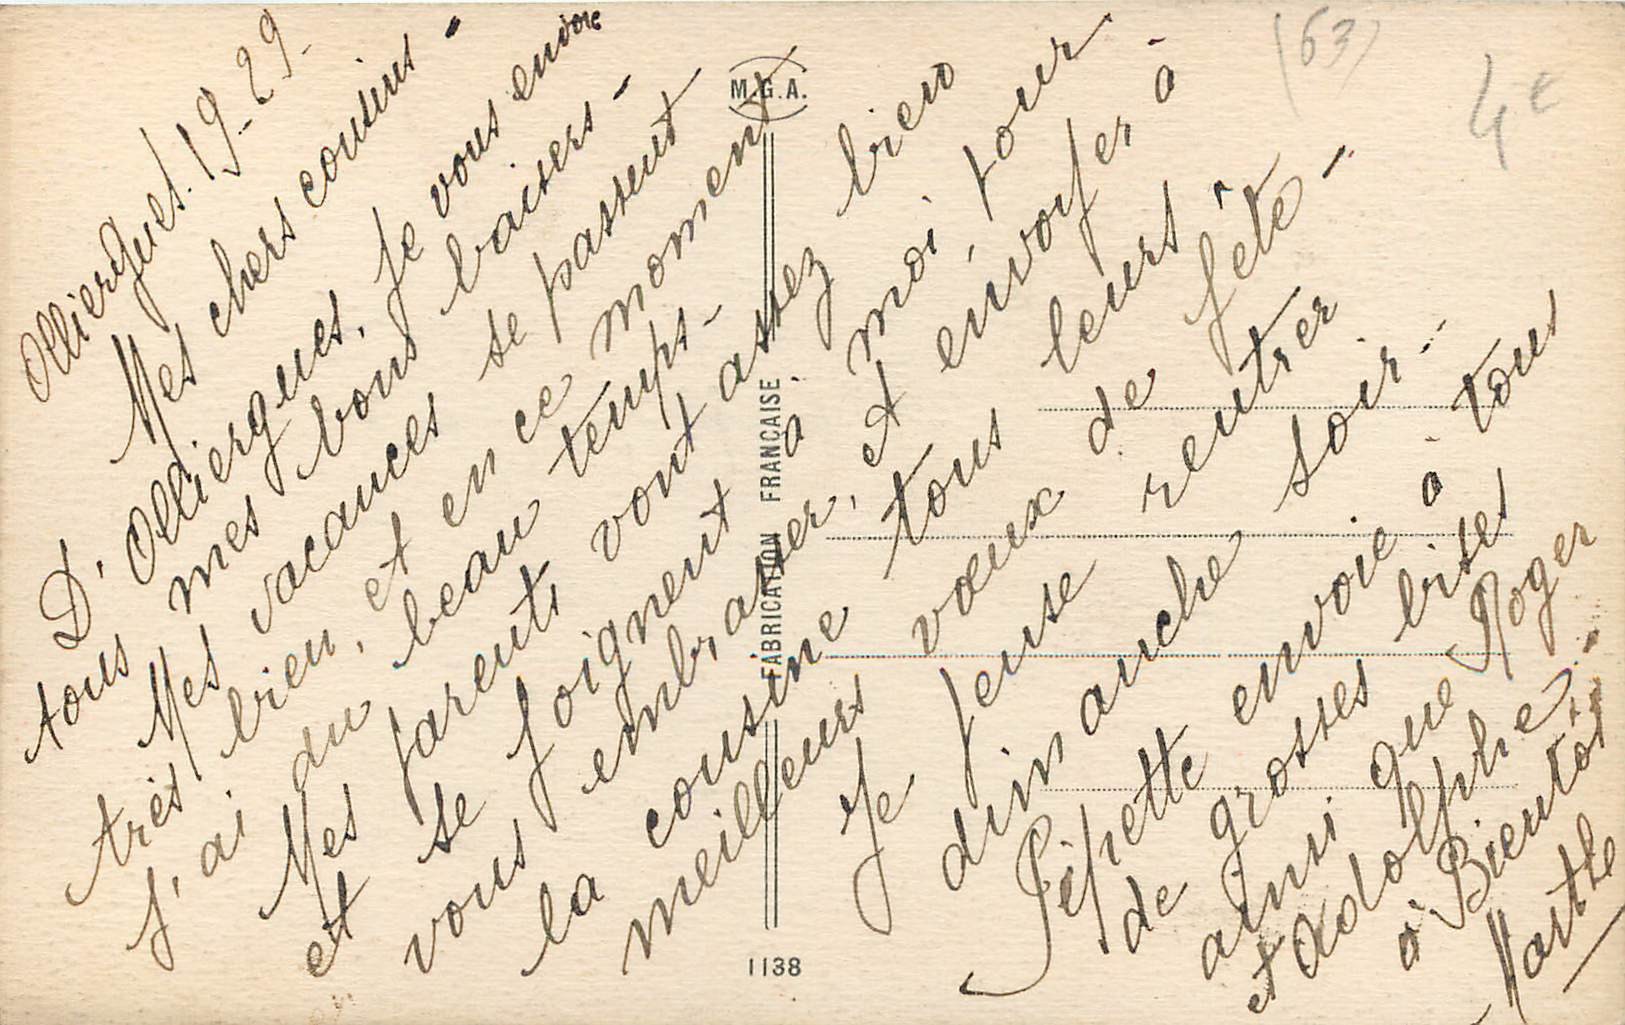 Ollierques. 19-29-
Mes chers cousins -
D'Ollierques, je vous envoie
tous mes bons baisers -
Mes vacances se passent
très bien, et en ce moment
j'ai du beau temps -
Mes parents vont assez bien
et se joignent à moi pour
vous embrasser, et envoyer, à
la cousine tous leurs
meilleurs vœux de fête -
Je pense rentrer
dimanche soir -
Pépette envoie à tous
de grosses bises
ainsi que Roger
et Adolphe -
à Bientôt
Marthe
M.G.A.
FABRICATION FRANCAISE
1138
(63)
4€